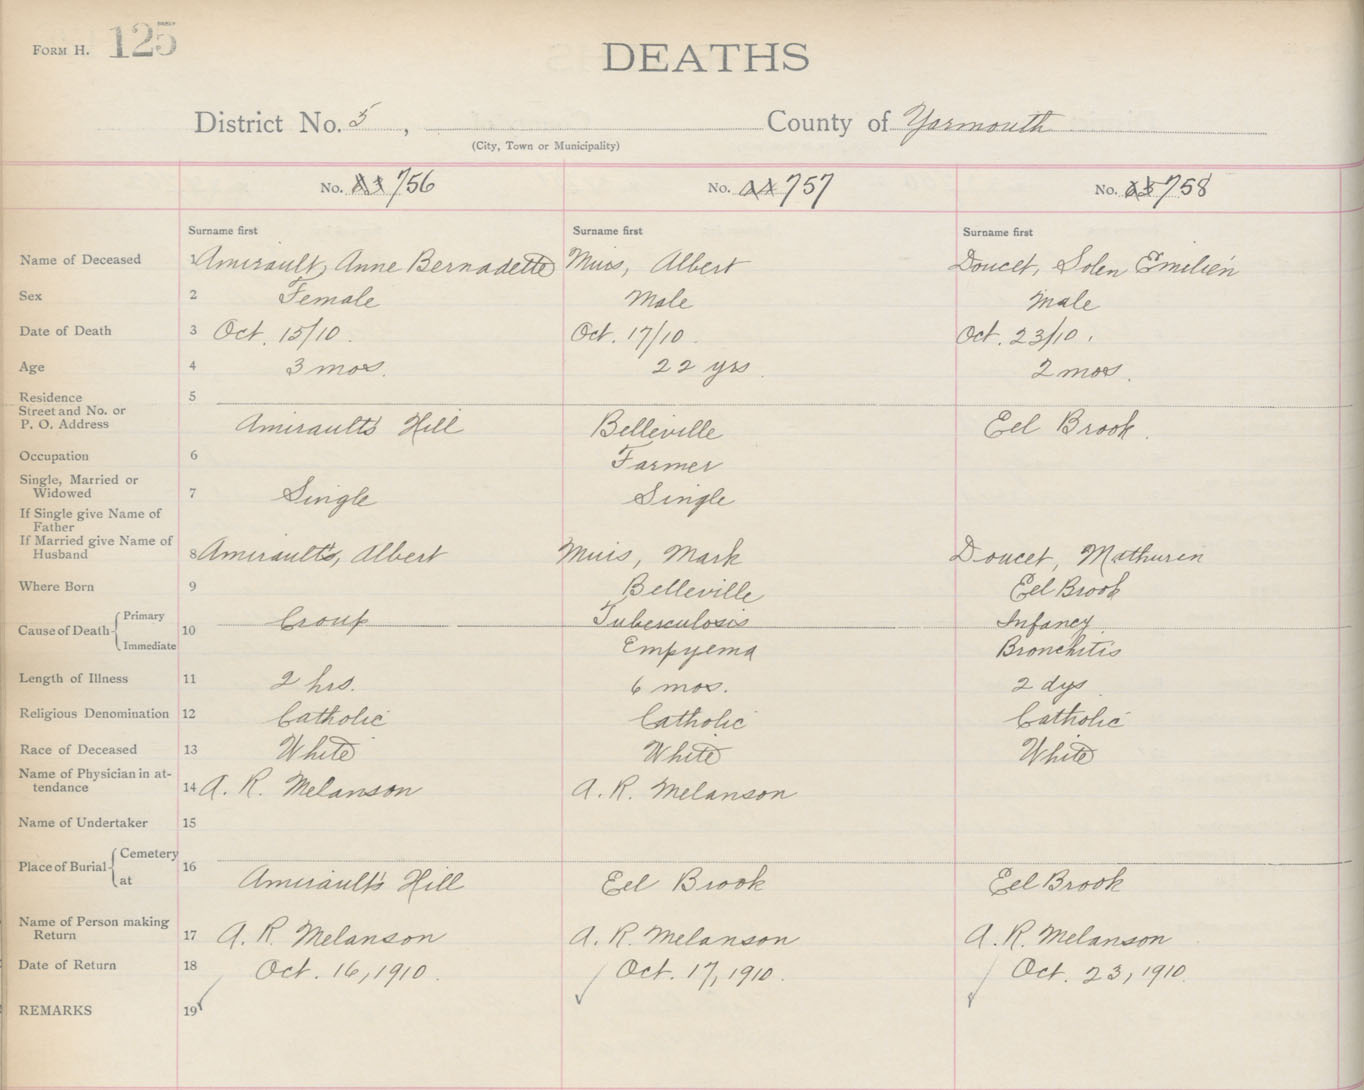 FORM H. 125
DEATHS
District No. 5, County of Yarmouth
(City, Town or Municipality)
No. 756 No. 757 No. 758
Surname first Surname first Surname first
Name of Deceased 1 Amirault, Anne Bernadette Muis, Albert Doucet, Solen Emilien
Sex 2 Female Male Male
Date of Death 3 Oct. 15/10. Oct. 17/10. Oct. 23/10.
Age 4 3 mos. 22 yrs. 2 mos.
Residence 5
Street and No. or
P. O. Address Amirault's Hill Belleville Eel Brook.
Occupation 6 Farmer
Single, Married or
Widowed 7 Single Single
If Single give Name of
Father
If Married give Name of
Husband 8 Amirault's, Albert Muis, Mark Doucet, Mathurin
Where Born 9 Belleville Eel Brook
Cause of Death 10 Primary Croup Tuberculosis Infancy
Immediate Empyema Bronchitis
Length of Illness 11 2 hrs. 6 mos. 2 dys
Religious Denomination 12 Catholic Catholic Catholic
Race of Deceased 13 White White White
Name of Physician in at-
tendance 14 A. R. Melanson A. R. Melanson
Name of Undertaker 15
Place of Burial 16 Cemetery
at Amirault's Hill Eel Brook Eel Brook
Name of Person making
Return 17 A. R. Melanson A. R. Melanson A. R. Melanson
Date of Return 18 Oct. 16, 1910. Oct. 17, 1910. Oct. 23, 1910.
REMARKS 19